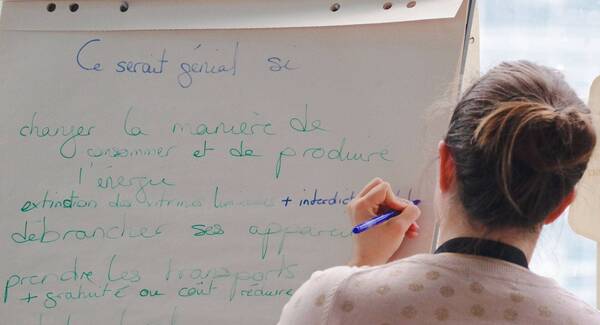 Ce serait génial si
changer la manière de
consommer et de produire
l'énergie
extinction des vitrines lumineuses + interdiction
débrancher ses appareils
prendre les transports
+ gratuité ou coût réduire